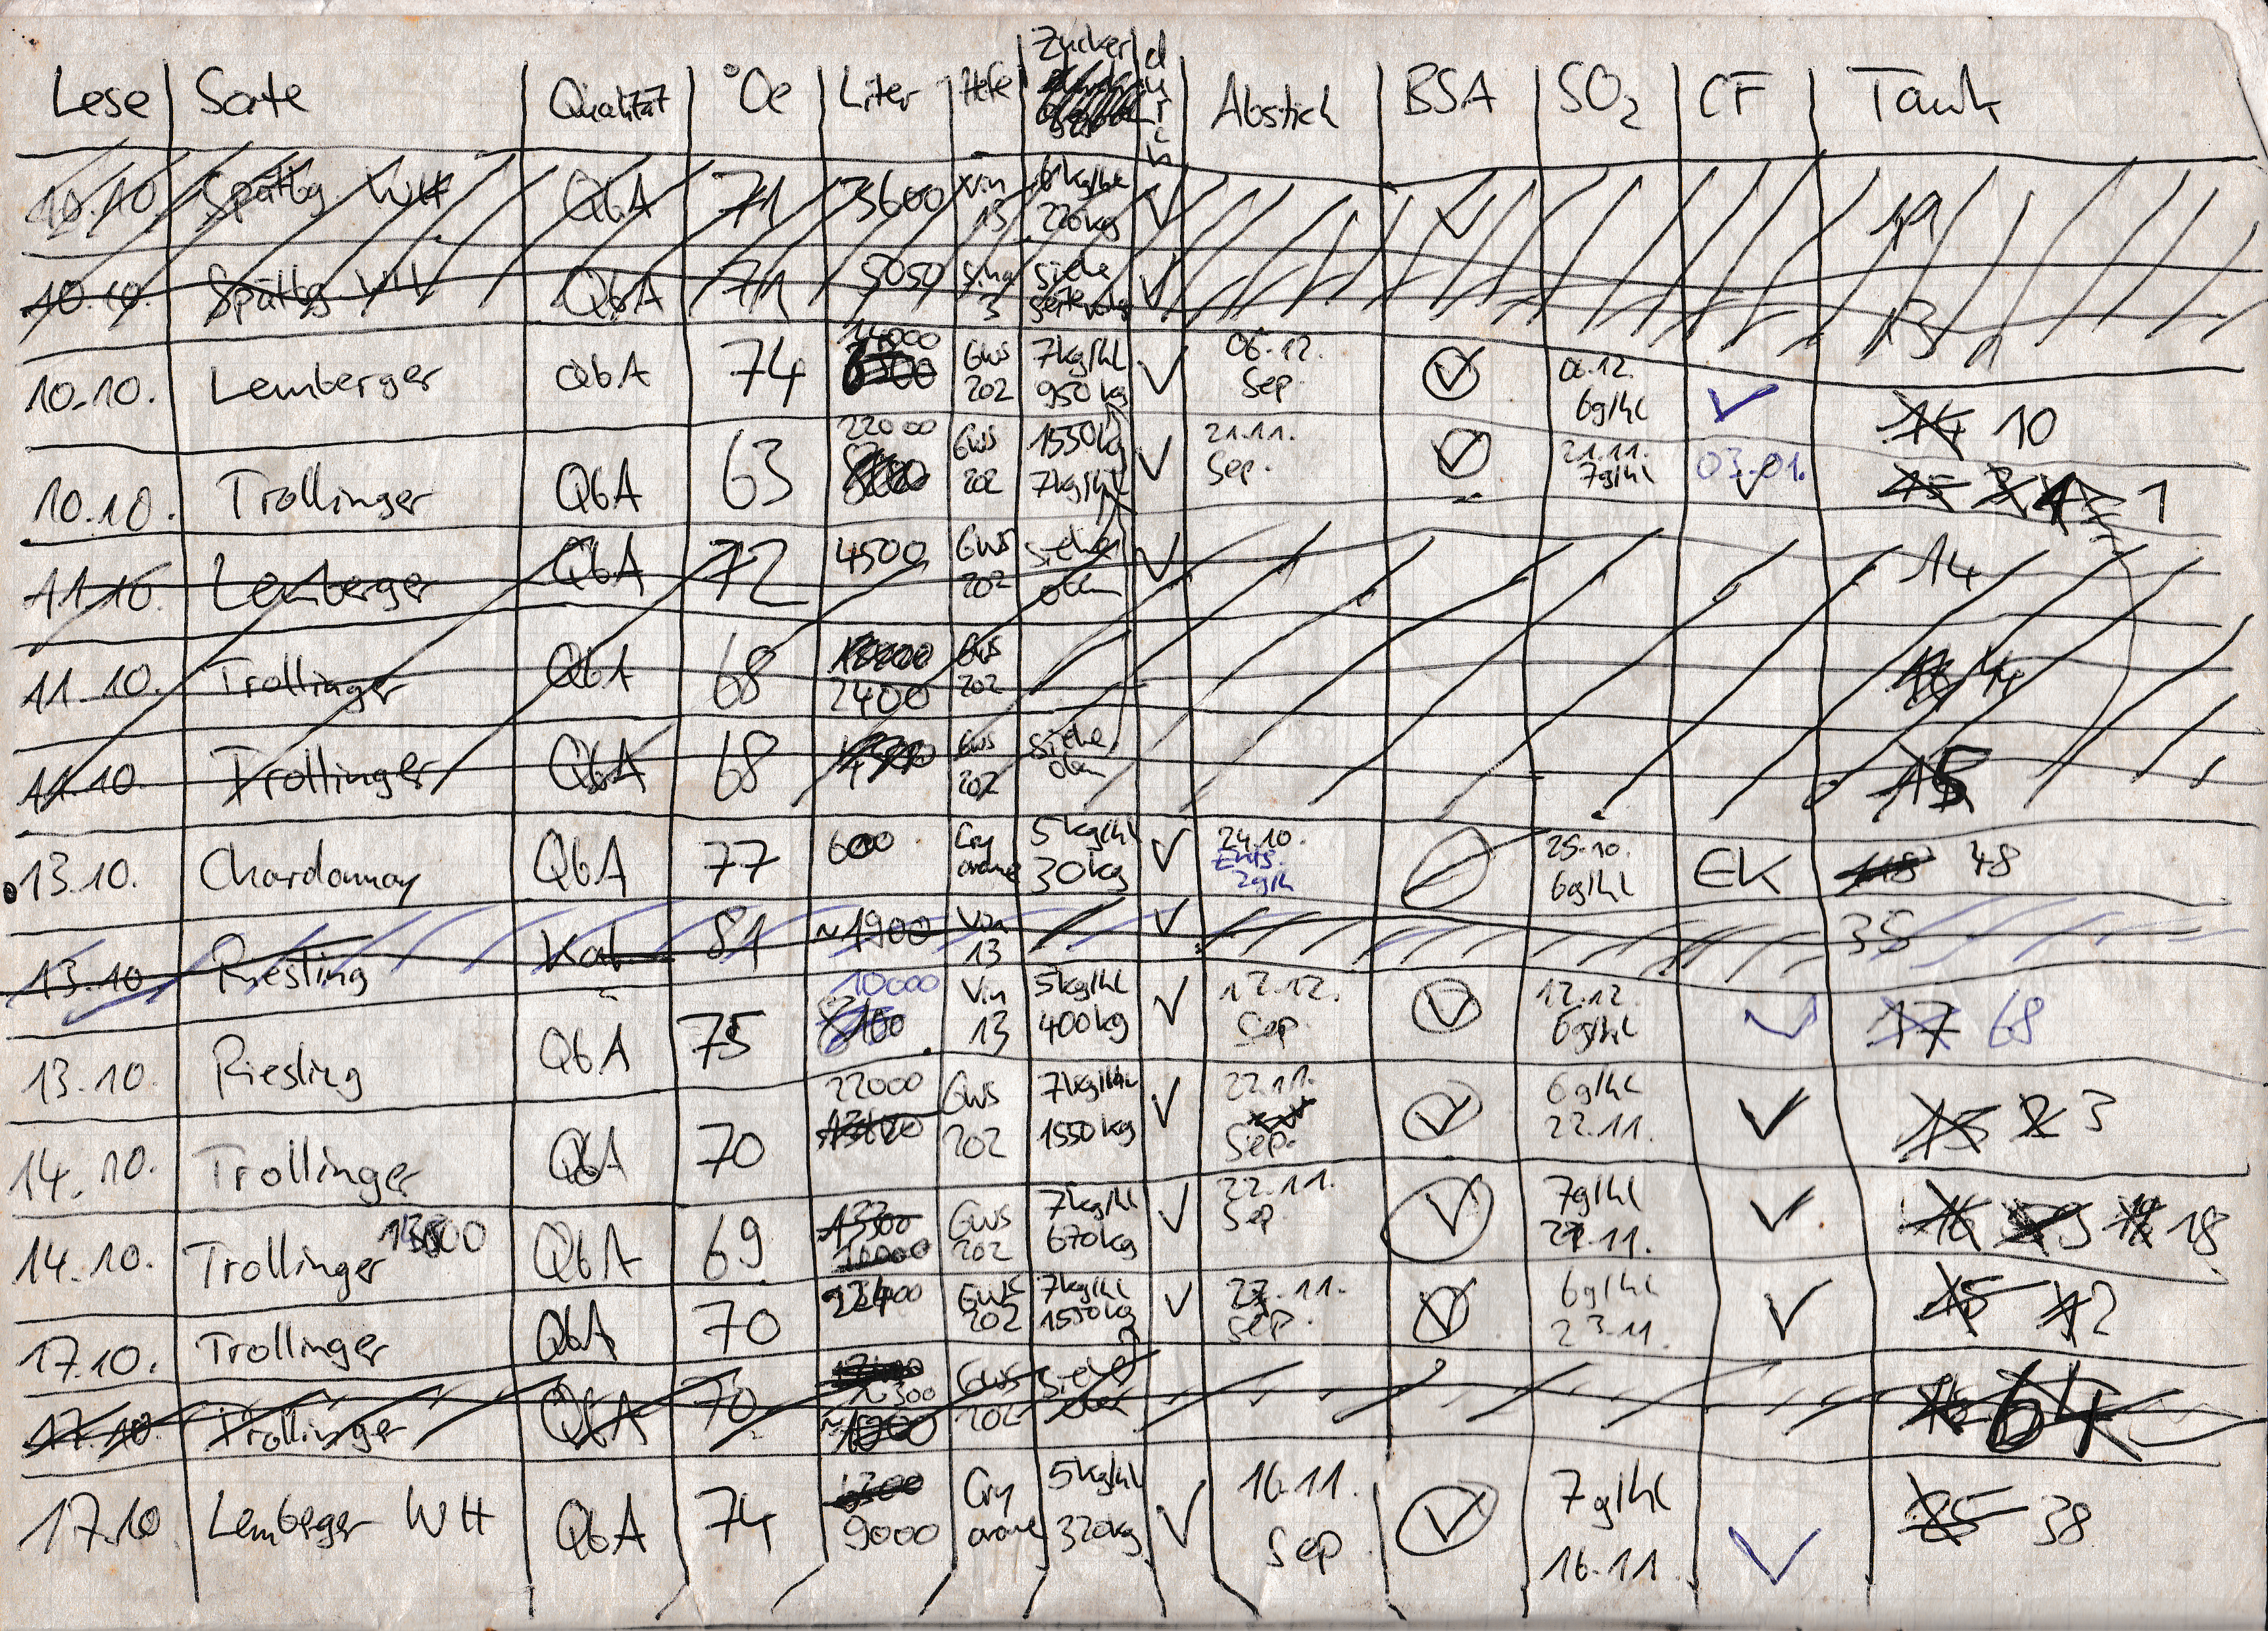 Lese Sorte Qualität °Oe Liter Hefe Zucker durch Abstich BSA SO2 CF Tank
10.10 Spätbg. WH QbA 71 3600 Vin 13 6kg/hl 220kg ✓ ✓ 19
10.10. Spätbg. WH QbA 71 5050 Siha 3 siehe ✓ 13
10.10. Lemberger QbA 74 14000 GWS 202 7kg/hl 950kg ✓ 06.12. Sep. ✓ 06.12. 6g/hl ✓ 14 10
10.10. Trollinger QbA 63 22000 GWS 202 1550kg 7kg/hl ✓ 21.11. Sep. ✓ 21.11. 7g/hl 03.01. ✓ 15 1
11.10. Lemberger QbA 72 4500 GWS 202 siehe oben ✓ 14
11.10. Trollinger QbA 68 2400 GWS 202 14
11.10. Trollinger QbA 68 GWS 202 siehe oben 15
13.10. Chardonnay QbA 77 600 Cry arome 5kg/hl 30kg ✓ 24.10. Ents. 2g/h 25.10. 6g/hl EK 48
13.10 Riesling Kab. 81 ~1900 Vin 13 ✓ 35
13.10. Riesling QbA 75 10000 8100 Vin 13 5kg/hl 400kg ✓ 12.12. Sep. ✓ 12.12. 6g/hl ✓ 17 68
14.10. Trollinger QbA 70 22000 GWS 202 7kg/hl 1550kg ✓ 22.11. Sep. ✓ 6g/hl 22.11. ✓ 15 2 3
14.10. Trollinger QbA 69 13300 10000 GWS 202 7kg/hl 670kg ✓ 22.11. Sep. ✓ 7g/hl 22.11. ✓ 16 18
17.10. Trollinger QbA 70 GWS 202 7kg/hl 1550kg ✓ 22.11. Sep. ✓ 6g/hl 23.11. ✓ 15 2
17.10. Trollinger QbA 70 GWS 202 siehe oben 64
17.10 Lemberger WH QbA 74 6300 9000 Cry arome 5kg/hl 320kg ✓ 16.11. Sep ✓ 7g/hl 16.11. ✓ 38